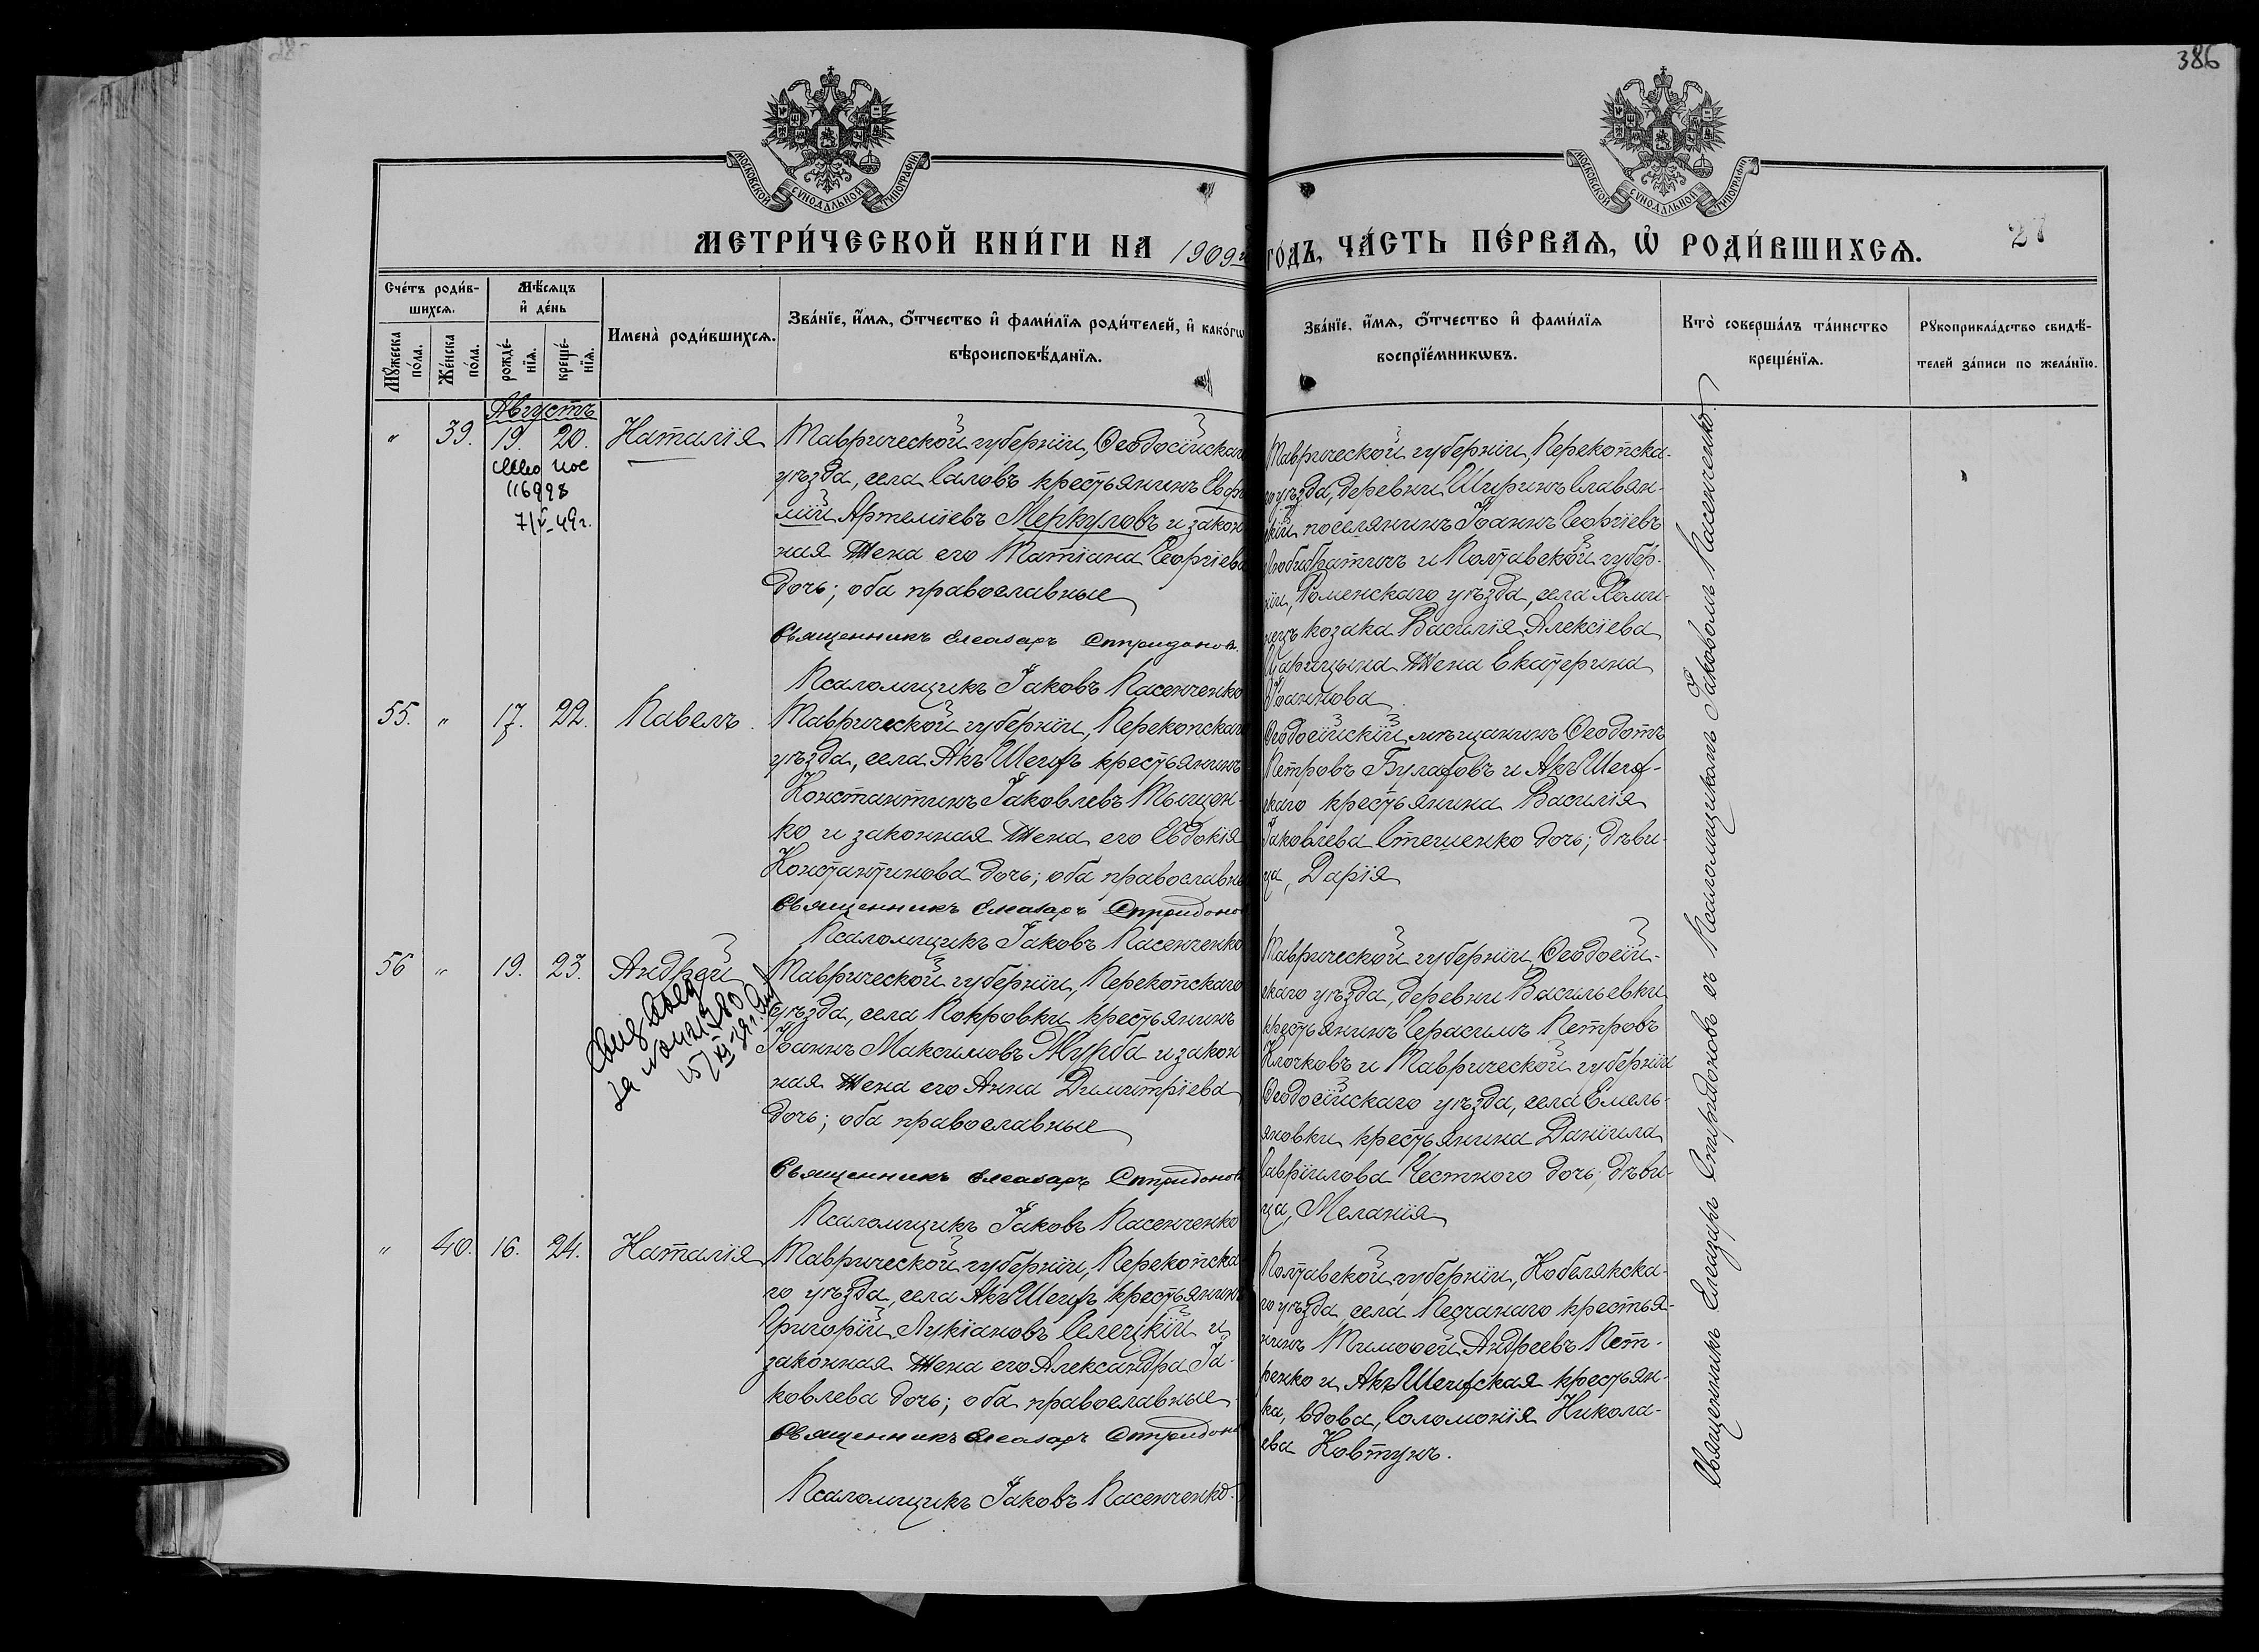 386
МОСКОВСКОЙ СѴНОДАЛЬНОЙ ТИПОГРАФІИ
МОСКОВСКОЙ СѴНОДАЛЬНОЙ ТИПОГРАФІИ
МЕТРИ́ЧЕСКОЙ КНИ́ГИ НА 1909й ГО́ДЪ, ЧА́СТЬ ПЕ́РВАѦ, Ѡ҆ РОДИ́ВШИХСѦ.
27
Сче́тъ роди́в-
шихсѧ.
Мꙋ́жеска по́ла.
Же́нска по́ла.
Мѣ́сѧцъ
и҆ де́нь
рожде́-
нїѧ.
креще́-
нїѧ.
Имена̀ роди́вшихсѧ.
Зва́нїе, и҆́мѧ, ѻ҆́тчество и҆ фами́лїѧ роди́телей, и҆ како́гѡ
вѣроисповѣ́данїѧ.
Зва́нїе, и҆́мѧ, ѻ҆́тчество и҆ фами́лїѧ
воспрїе́мникѡвъ.
Кто̀ соверша́лъ та́инство
креще́нїѧ.
Рꙋкоприкла́дство свидѣ́-
телей за́писи по жела́нїю.
Августъ
" 39. 19. 20. Наталія
116998
7/V-49г.
Таврической губерніи, Ѳеодосійскаго
уѣзда, села Саловъ крестьянинъ Евфи
мій Артеміевъ Меркуловъ и закон
ная жена его Татіана Георгіева
дочь; оба православные
Священникъ Елеазаръ Спиридонов
Псаломщикъ Іаковъ Пасенченко
Таврической губерніи, Перекопска-
го уѣзда, деревни Ширинъ Славян-
скій поселянинъ Іоаннъ Георгіевъ
Любибратинъ и Полтавской губер-
ніи, Роменскаго уѣзда, села
козака Василія Алексіева
Царицына жена Екатерина
Іоаннова
55. " 17. 22. Павелъ.
Таврической губерніи, Перекопскаго
уѣзда, села Акъ Шеихъ крестьянинъ
Константинъ Іаковлевъ Тыщен-
ко и законная жена его Евдокія
Константинова дочь; оба православны
Священникъ Елеазаръ Спиридонов
Псаломщикъ Іаковъ Пасенченко
Ѳеодосійскій мѣщанинъ Ѳеодотъ
Петровъ Булатовъ и Акъ Шеих-
скаго крестьянина Василія
Іаковлева Стешенко дочь; дѣви-
ца, Дарія
56 " 19. 23. Андрей
15/XI-39г.
Таврической губерніи, Перекопскаго
уѣзда, села Покровки крестьянинъ
Іоаннъ Максимовъ Журба и закон
ная жена его Анна Димитріева
дочь; оба православные
Священникъ Елеазаръ Спиридонов
Псаломщикъ Іаковъ Пасенченко
Таврической губерніи, Ѳеодосій-
скаго уѣзда, деревни Васильевки
крестьянинъ Герасимъ Петровъ
Клочковъ и Таврической губерніи
Ѳеодосійскаго уѣзда, села Емель-
яновки крестьянина Даніила
Гавріилова Честного дочь; дѣви-
ца, Меланія
" 40. 16. 24. Наталія
Таврической губерніи, Перекопска
го уѣзда, села Акъ Шеихъ крестьянинъ
Григорій Лукіановъ Селецкій и
законная жена его Александра Іа-
ковлева дочь; оба православные
Священникъ Елеазаръ Спиридонов
Псаломщикъ Іаковъ Пасенченко.
Полтавской губерніи, Кобелякска-
го уѣзда, села Песчанаго крестья-
нинъ Тимоѳей Андреевъ Пет-
ренко и Акъ Шеихская крестьян-
ка, вдова, Соломонія Никола-
ева Ковтунъ.
Священникъ Елеазаръ Спиридоновъ съ Псаломщикомъ Іаковомъ Пасенченко.